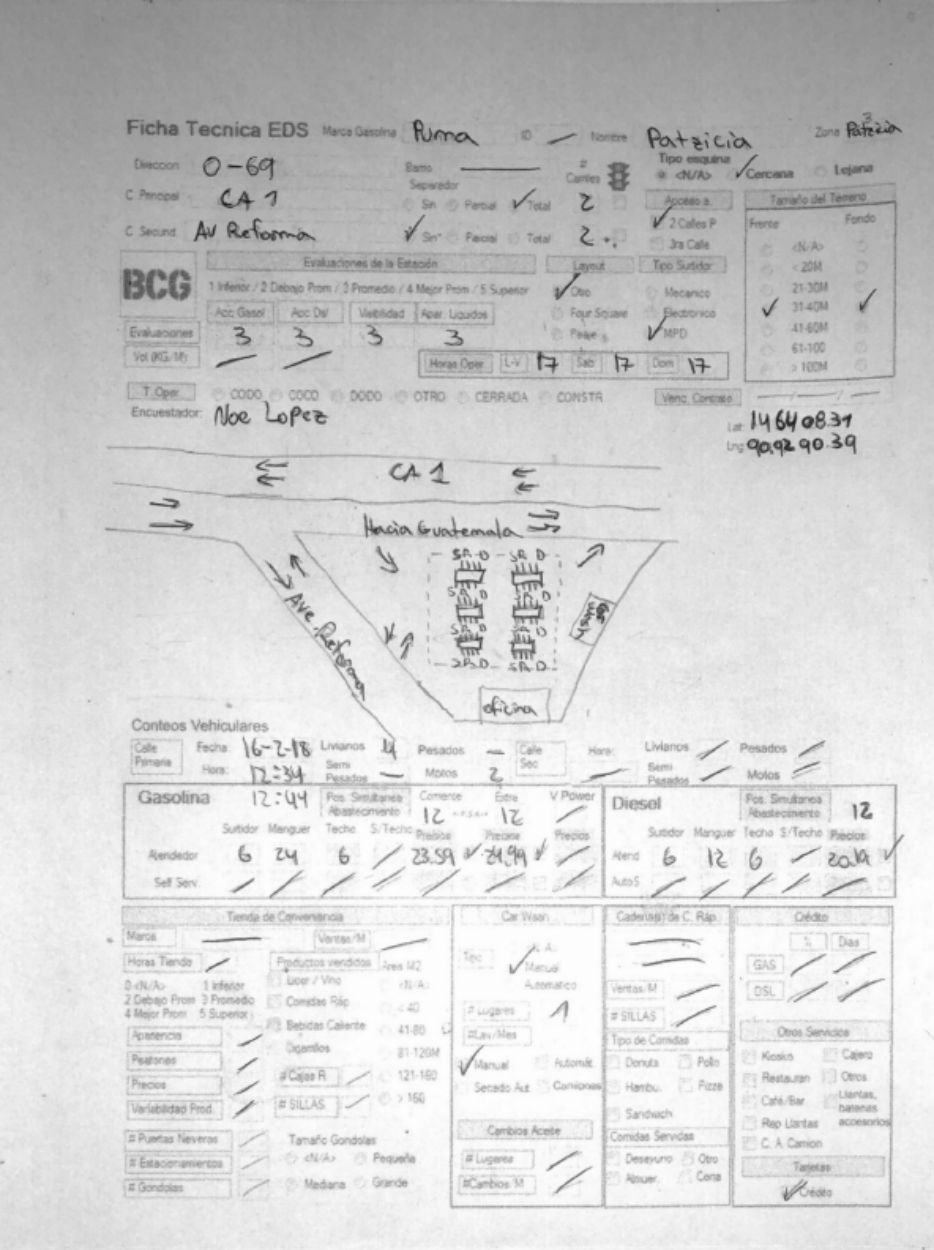 Ficha Tecnica EDS Marca Gasolina Puma ID — Nombre Patzicia Zona 3 Patzicia
Direccion 0-69 Barrio — # Carriles Tipo esquina <N/A> Cercana Lejana
C Principal CA 1 Separador Sin Parcial Total 2 Acceso a: Tamaño del Terreno
C Secund Av Reforma Sin Parcial Total 2 2 Calles P Frente Fondo
3ra Calle <N/A>
BCG Evaluaciones de la Estación Layout Tipo Surtidor < 20M
1 Inferior / 2 Debajo Prom / 3 Promedio / 4 Mejor Prom / 5 Superior Otro Mecanico 21-30M
Acc Gasol Acc Dsl Visibilidad Apar. Liquidos Four Square Electronico 31-40M
Evaluaciones 3 3 3 3 MPD 41-60M
Vol (KG/M) Horas Oper. L-V 17 Sab 17 Dom 17 61-100
> 100M
T. Oper CODO COCO DODO OTRO CERRADA CONSTR Venc. Contrato
Encuestador: Noe Lopez Lat 14 64 08.31
Lng 90.92 90.39
CA 1
Hacia Guatemala
S R D S R D
Ave. Reforma
Car Wash
S R D S R D
oficina
Conteos Vehiculares
Calle Primaria Fecha 16-2-18 Livianos 4 Pesados — Calle Sec Hora: Livianos Pesados
Hora: 12:34 Semi Pesados — Motos 2 Semi Pesados Motos
Gasolina 12:44 Pos. Simultanea Abastecimiento 12 12 V Power Diesel Pos. Simultanea Abastecimiento 12
Surtidor Manguer Techo S/Techo Precios Precios Precios Surtidor Manguer Techo S/Techo Precios
Atendedor 6 24 6 23.59 24.99 Atend 6 12 6 20.19
Self Serv. Auto S
Tienda de Conveniencia Car Wash Cadena(s) de C. Ráp. Crédito
Marca — Ventas/M % Dias
Horas Tienda Productos vendidos Area M2 Tipo N/A Manual Automatico GAS
0 <N/A> 1 Inferior Licor / Vino <N/A> Ventas/M DSL
2 Debajo Prom 3 Promedio Comidas Ráp < 40 # Lugares 1 # SILLAS
4 Mejor Prom 5 Superior Bebidas Caliente 41-80 #Lav/Mes Tipo de Comidas Otros Servicios
Apariencia Cigarrillos 81-120M Manual Automát. Donuts Pollo Kiosko Cajero
Peatones # Cajas R 121-160 Secado Aut. Camiones Hambu. Pizza Restauran Otros
Precios # SILLAS > 160 Sandwich Café/Bar Llantas, baterias accesorios
Variabilidad Prod. Rep Llantas
# Puertas Neveras Tamaño Gondolas Cambios Aceite Comidas Servidas C. A. Camion
# Estacionamientos <N/A> Pequeña # Lugares Desayuno Otro Tarjetas
# Gondolas Mediana Grande #Cambios/M Almuer. Cena Crédito